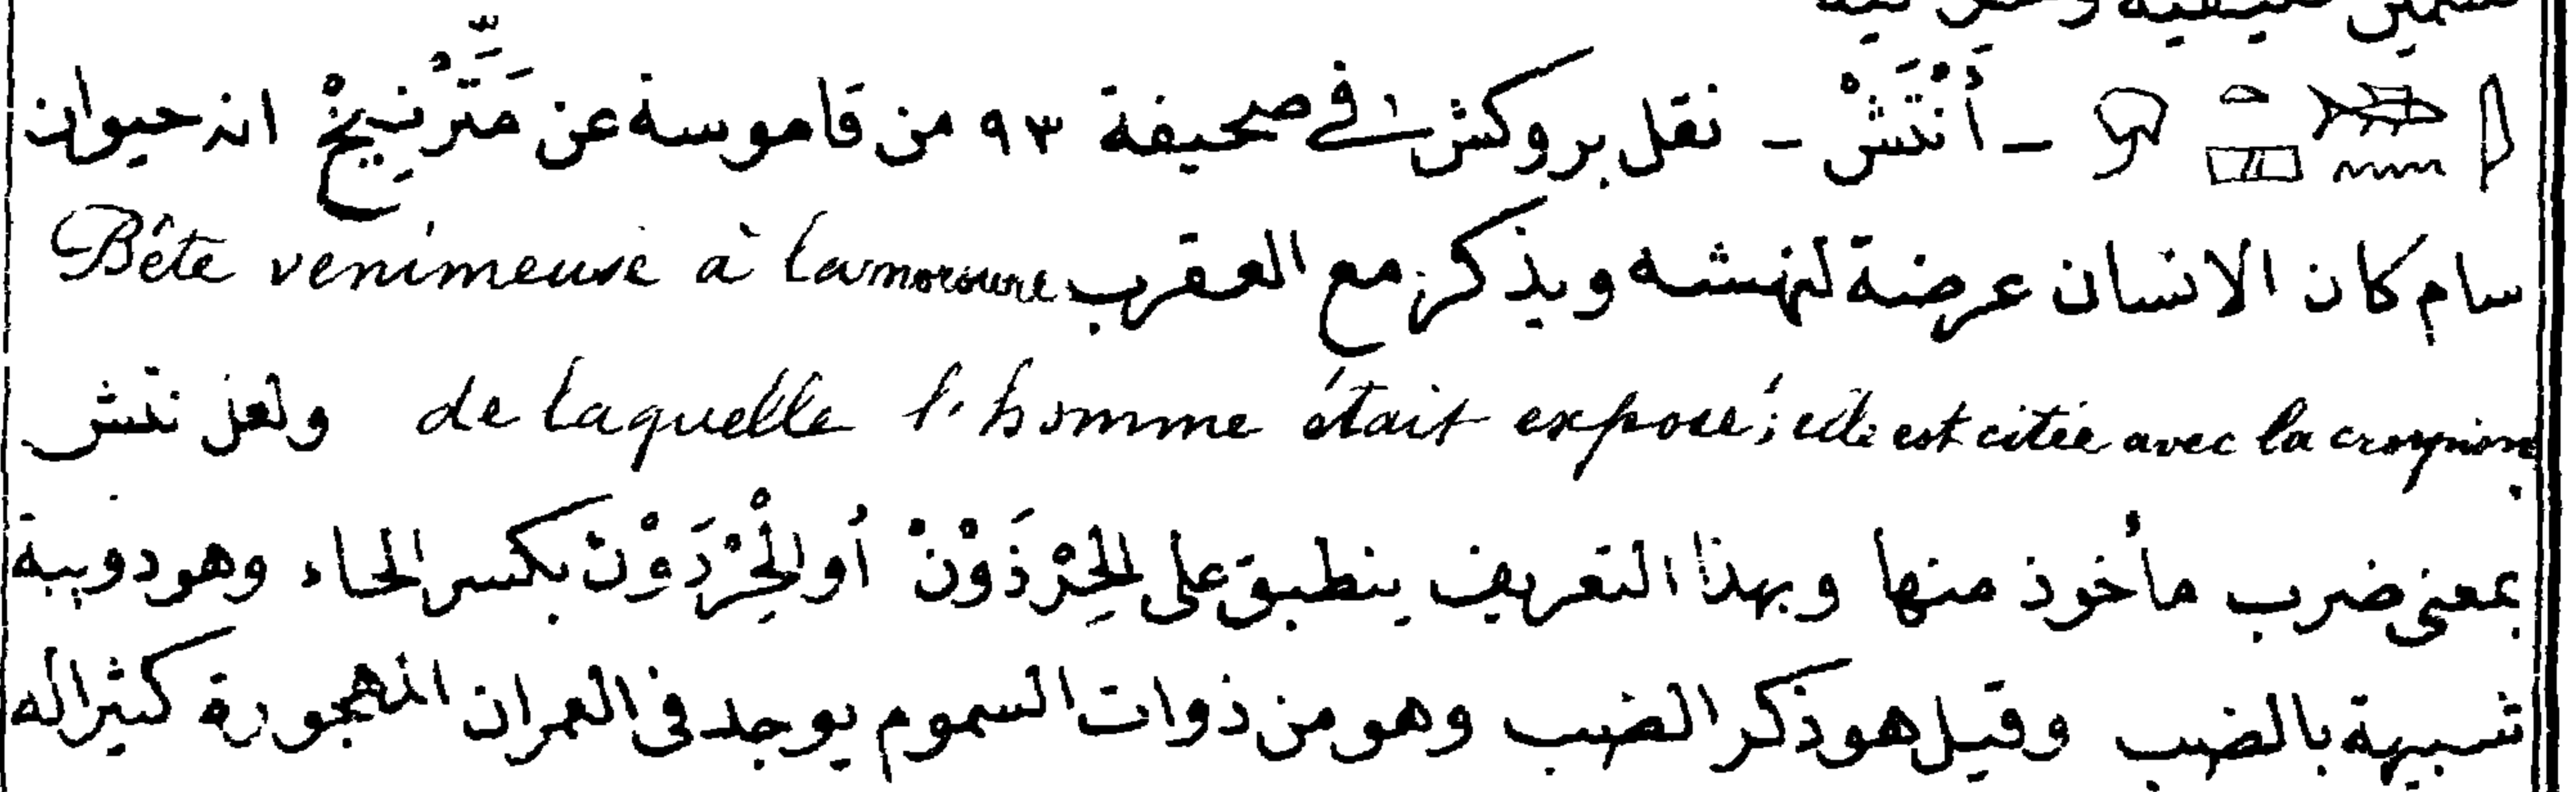 𓇋𓆛𓈖𓏏𓈙 ـ أَنْتَشْ ـ نقل بروكش فى صحيفة ٩٣ من قاموسه عن مَتَّرْنِيخْ انه حيوان
سام كان الانسان عرضة لنهشه ويذكر مع العقرب Bête venimeuse à la morsure
de laquelle l'homme était exposé; elle est citée avec la scorpion ولعل نتش
بمعنى ضرب مأخوذ منها وبهذا التعريف ينطبق على الحِرْذَوْنْ أو الحِرْدَوْنْ بكسر الحاء وهو دويبة
شبيهة بالضب وقيل هو ذكر الضب وهو من ذوات السموم يوجد فى العمران المهجورة كثيرا له